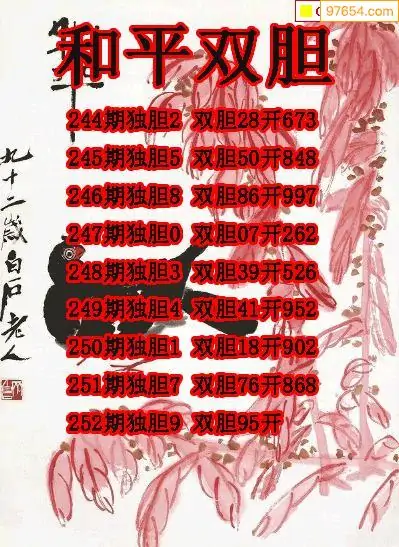 97654.com
和平双胆
244期独胆2 双胆28开673
245期独胆5 双胆50开848
246期独胆8 双胆86开997
247期独胆0 双胆07开262
248期独胆3 双胆39开526
249期独胆4 双胆41开952
250期独胆1 双胆18开902
251期独胆7 双胆76开868
252期独胆9 双胆95开
九十二岁白石老人